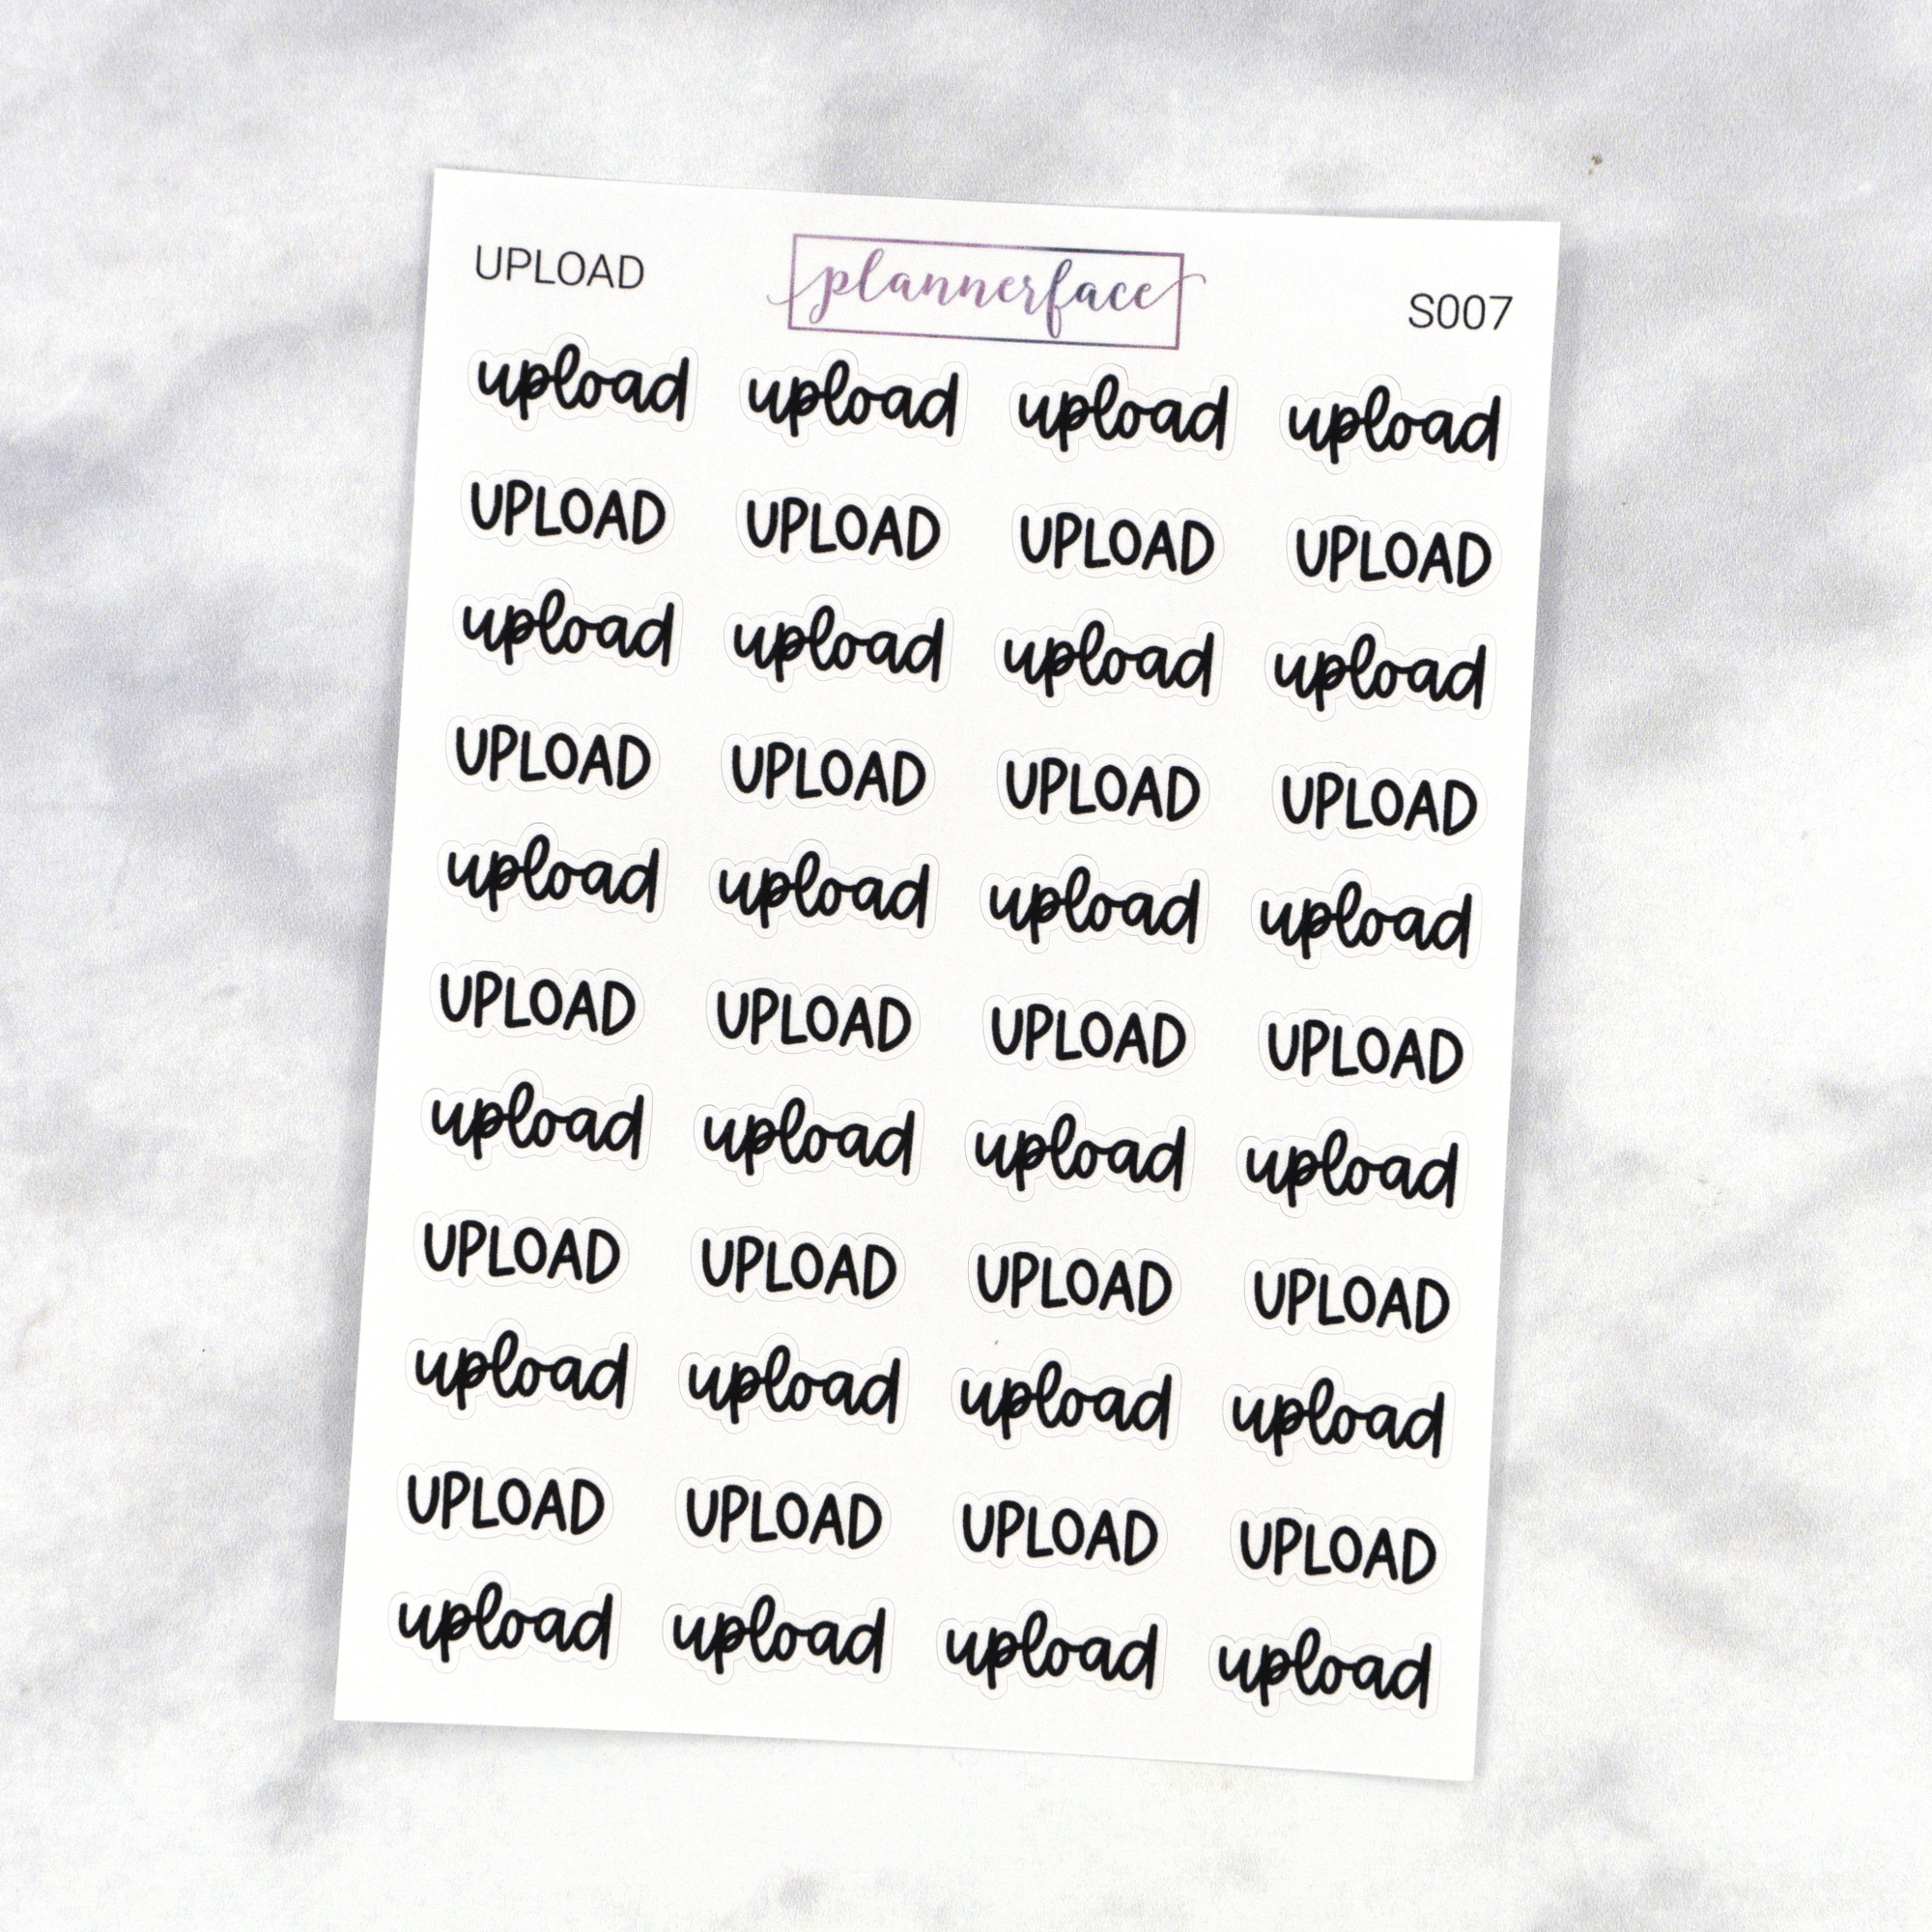 UPLOAD plannerface S007
upload upload upload upload
UPLOAD UPLOAD UPLOAD UPLOAD
upload upload upload upload
UPLOAD UPLOAD UPLOAD UPLOAD
upload upload upload upload
UPLOAD UPLOAD UPLOAD UPLOAD
upload upload upload upload
UPLOAD UPLOAD UPLOAD UPLOAD
upload upload upload upload
UPLOAD UPLOAD UPLOAD UPLOAD
upload upload upload upload